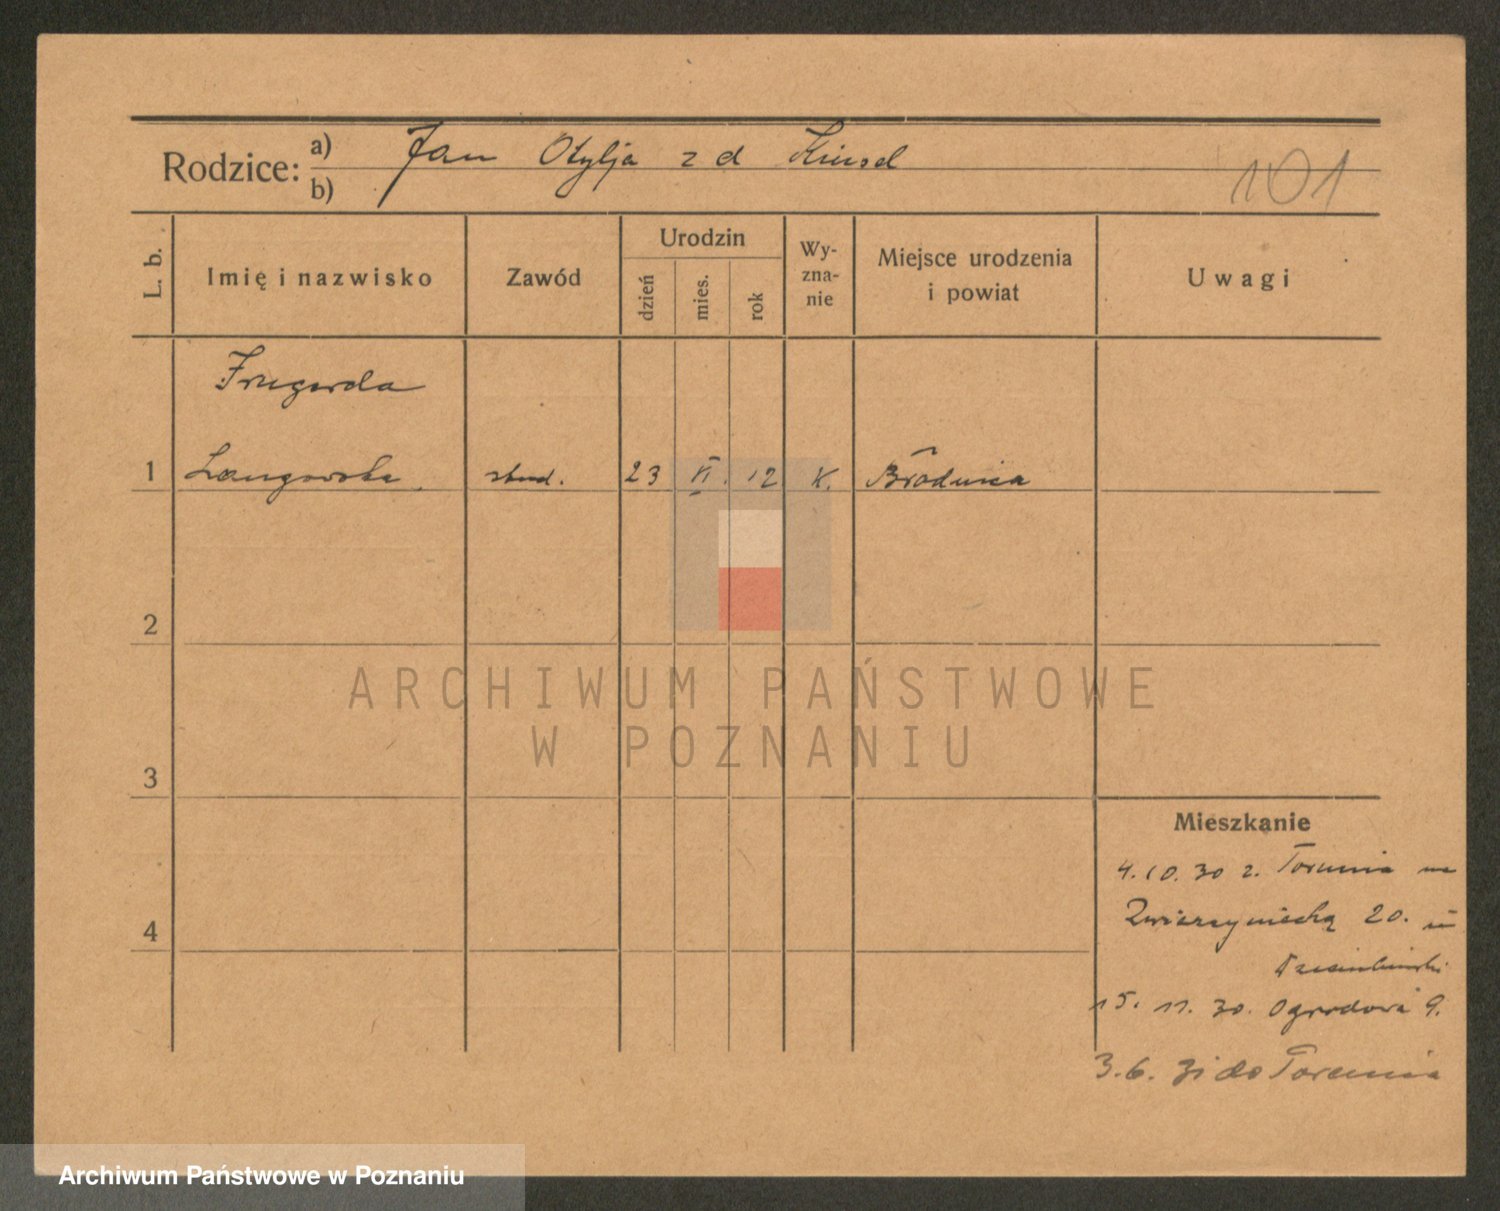 Rodzice: a) Jan Otylja z d
b)
101
L. b.
Imię i nazwisko
Zawód
Urodzin
dzień
mies.
rok
Wy-
zna-
nie
Miejsce urodzenia
i powiat
Uwagi
Irngarda
1 Langowska stud. 23 VI. 12 K. Brodnica
2
3
4
ARCHIWUM PAŃSTWOWE
W POZNANIU
Mieszkanie
4.10.30 z. Torunia na
Zwierzyniecką 20.
15. 11. 30. Ogrodowa 9.
3.6. 31 do Torunia
Archiwum Państwowe w Poznaniu